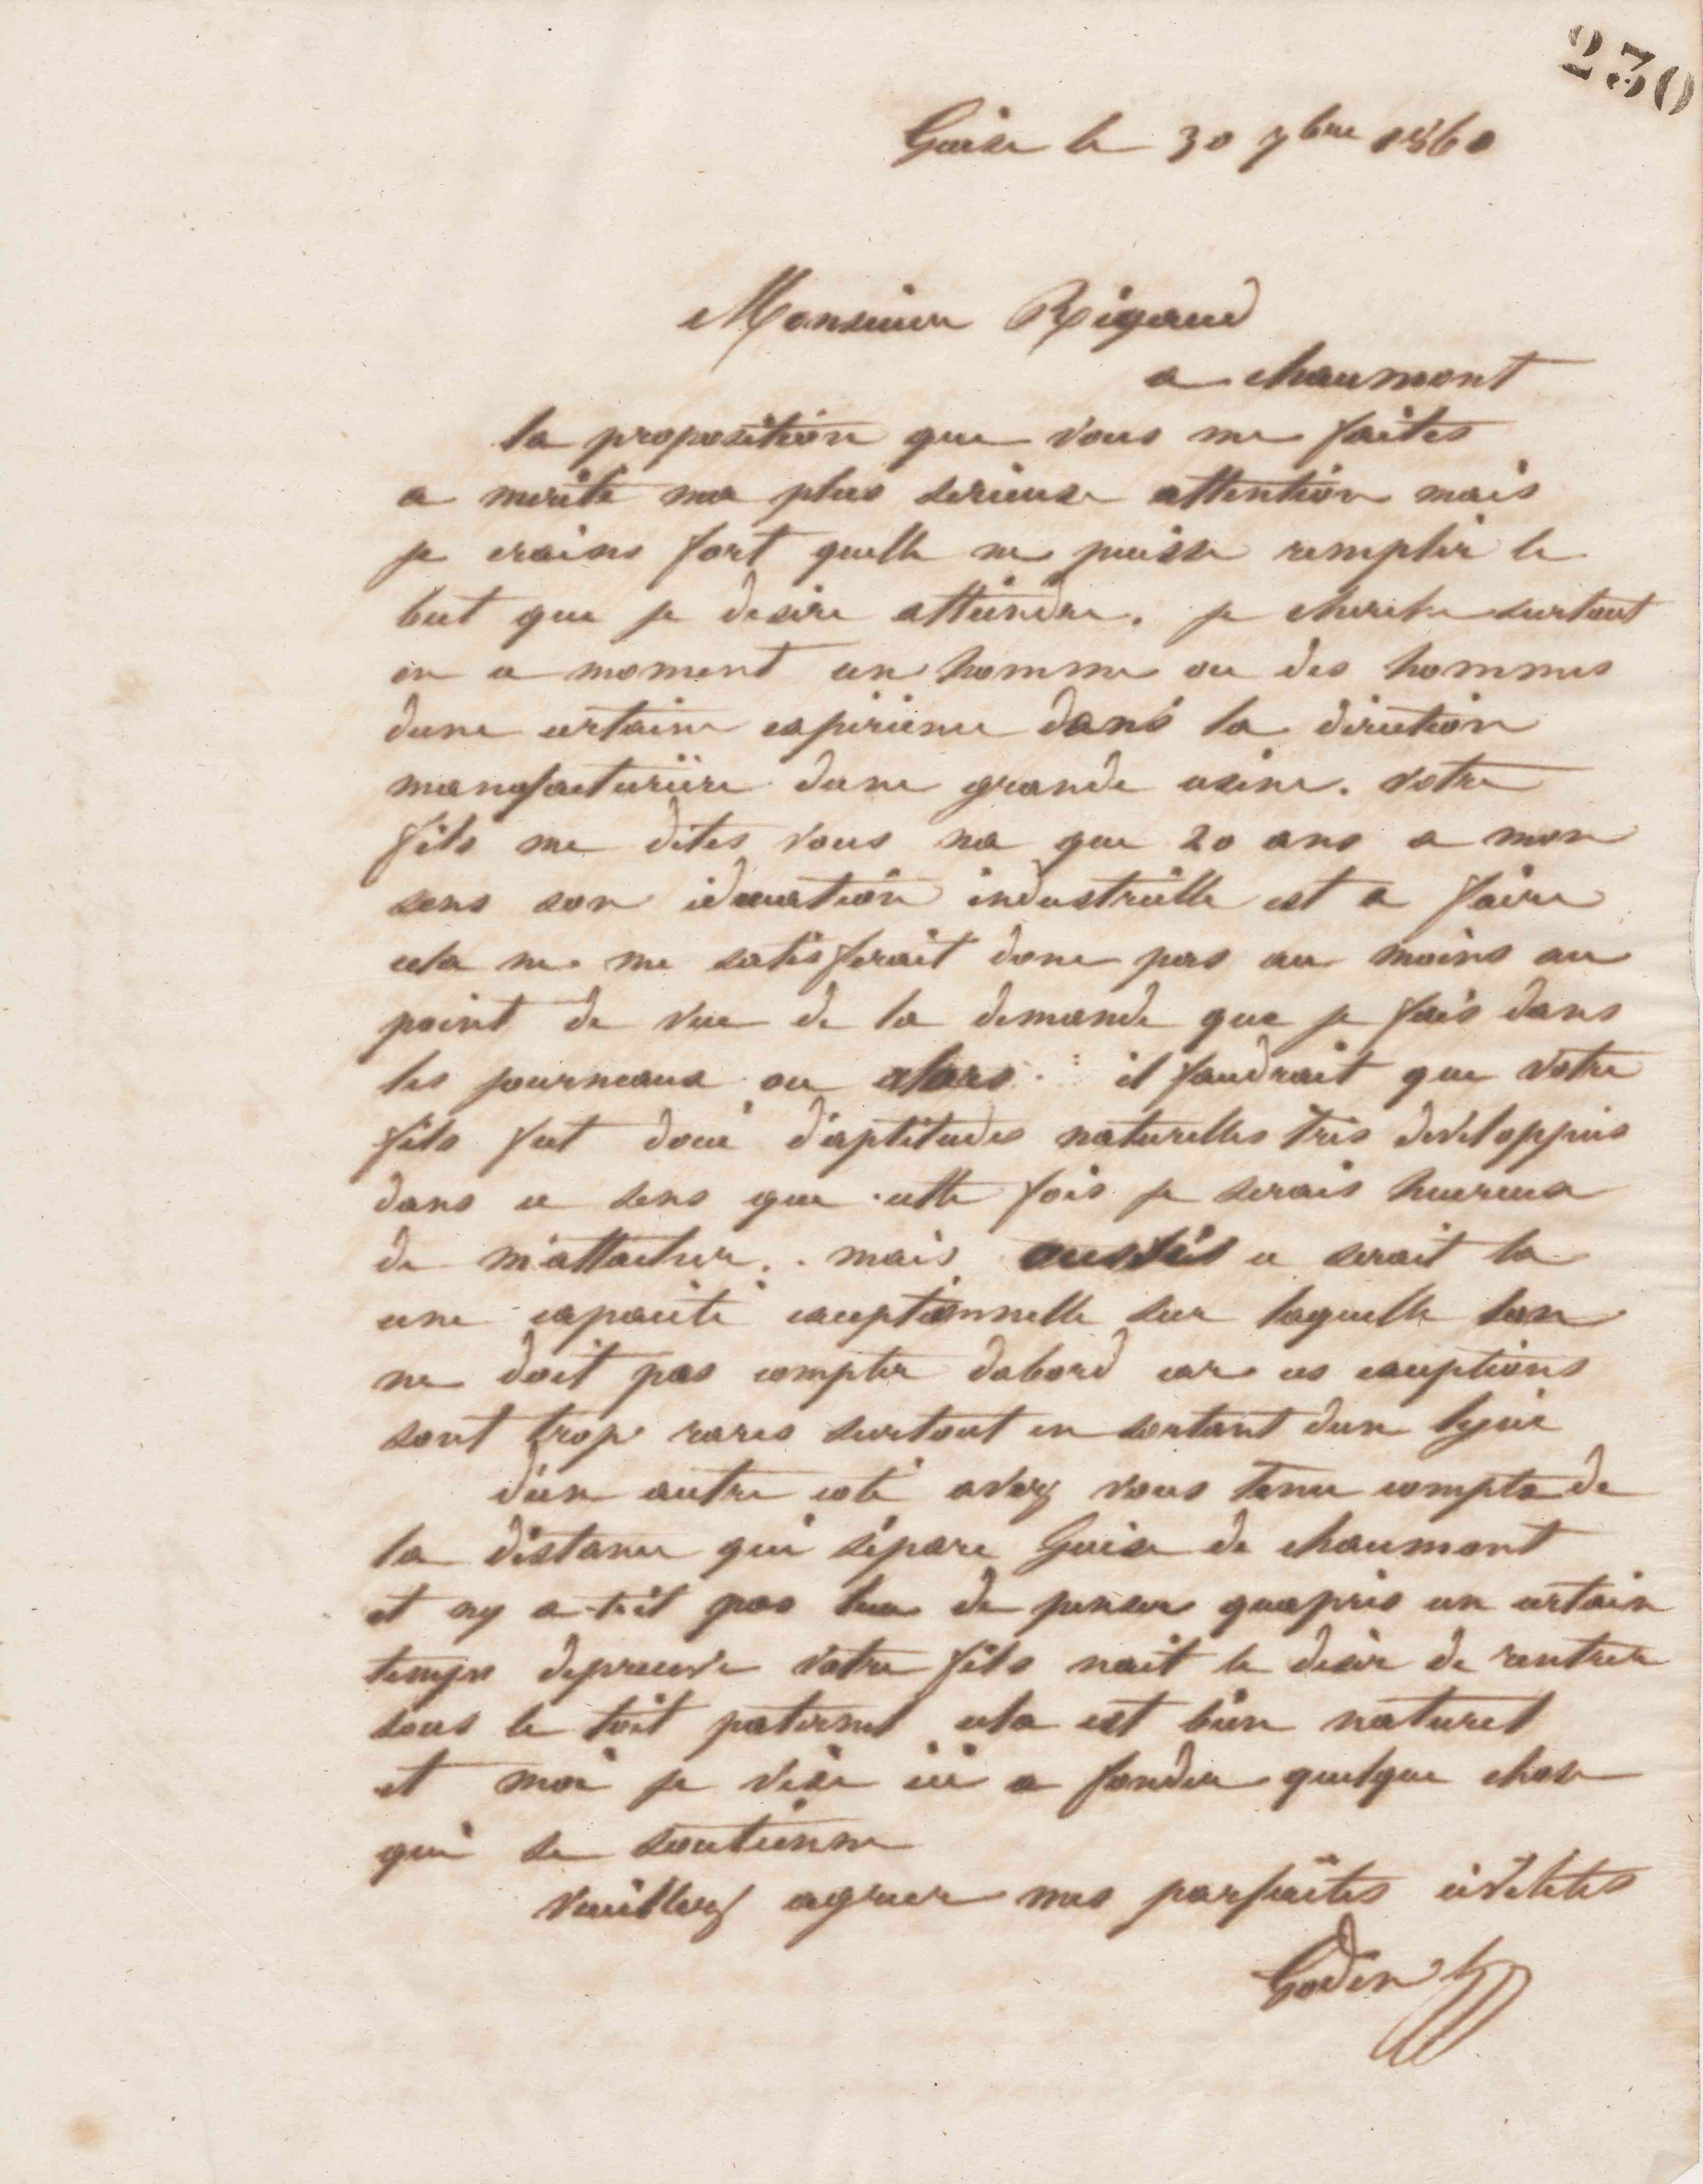 230
Guise le 30 7bre 1860
Monsieur Rigaud
a chaumont
la proposition que vous me faites
a merité ma plus serieuse attention mais
je crains fort quelle ne puisse remplir le
but que je desire atteindre. je cherche surtout
en ce moment un homme ou des hommes
dune certaine experience dans la direction
manufacturière dune grande usine. votre
fils me dites vous na que 20 ans a mon
sens son education industrielle est a faire
cela ne me satisferait donc pas au moins au
point de vue de la demande que je fais dans
les journeaux ou alors il faudrait que votre
fils fut doué d'aptitudes naturelles très developpées
dans ce sens que cette fois je serais heureux
de m'attacher. mais aussi ce serait la
une capacité exceptionnelle sur laquelle lon
ne doit pas compter dabord car ces exceptions
sont trop rares surtout en sortant dun lycée
d'un autre coté avez vous tenu compte de
la distance qui sépare Guise de chaumont
et ny a-t-il pas lieu de penser quapres un certain
temps depreuve votre fils nait le desir de rentrer
sous le toit paternel cela est bien naturel
et moi je vise ici a fonder quelque chose
qui se soutienne
veuillez agreer mes parfaites civilités
Godin